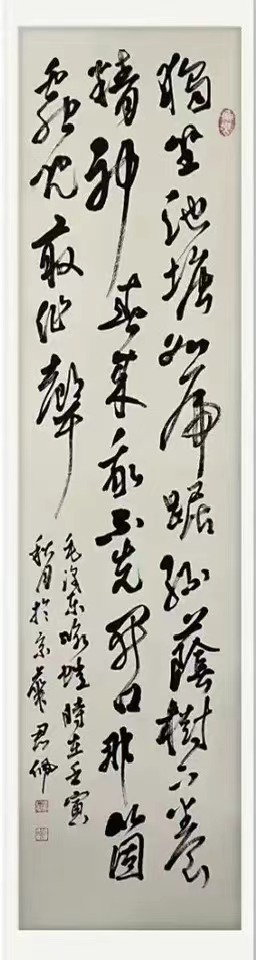 獨坐池塘如虎踞綠蔭樹下養
精神春來我不先開口那箇
蟲兒敢作聲
毛澤東咏蛙時在壬寅
秋月於京君佩